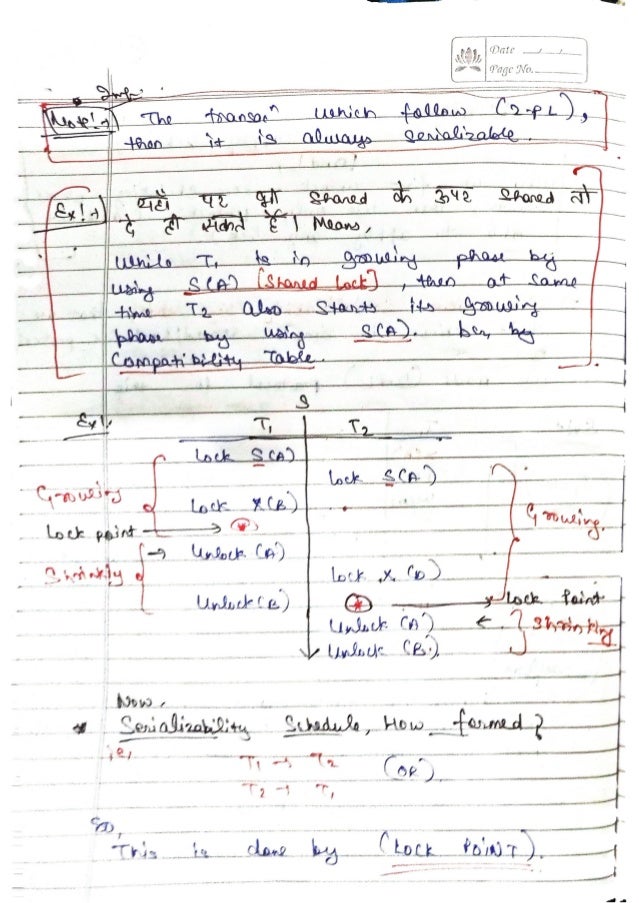 Date
Page No.
Imp.
Note! → The transacⁿ which follow (2-PL),
then it is always serializable.
Ex! → यहाँ पर भी Shared के ऊपर Shared तो
दे ही सकते हैं। Means,
While T₁ is in growing phase by
using S(A) [Shared Lock], then at same
time T2 also starts its growing
phase by using S(A). bcz, by
Compatibility Table.
S
Ex!. T₁ T₂
Lock S(A)
Lock S(A)
Growing Lock X(B)
Growing.
Lock point → *
→ Unlock (A)
Shrinking Lock X (D)
Unlock (B) * Lock Point
Unlock (A) ← Shrinking
Unlock (B).
Now,
* Serializability Schedule, How formed?
ie,
T₁ → T₂ (OR)
T₂ → T₁
So,
This is done by (LOCK POINT).